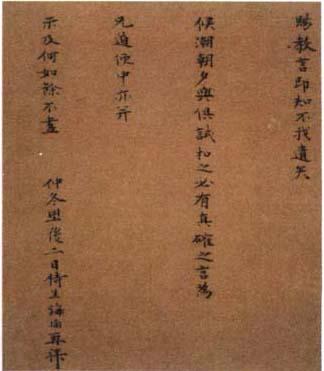 賜教言即知不我遺矣
候潮朝夕與俱試扣之必有真確之言為
先道便中亦并
示及何如餘不盡
仲冬望後二日侍生 再拜